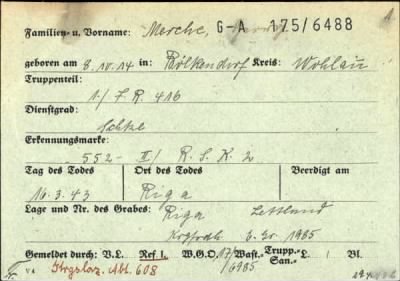 1
Familien- u. Vorname: Merche, G-A 175/6488
geboren am 8.10.14 in: Bölkendorf Kreis: Wohlau
Truppenteil:
1./ J. R. 416
Dienstgrad:
Schtz.
Erkennungsmarke:
-552- II/ R. S. K. 2
Tag des Todes Ort des Todes Beerdigt am
16.3.43 Riga
Lage und Nr. des Grabes: Riga Lettland
E. Gr. 1985
Gemeldet durch: V.L. Ref. I. W.G.O. 17/6985 Wast.- Trupp.- San.- L. Bl.
V 4 Krgslaz. Abt. 608